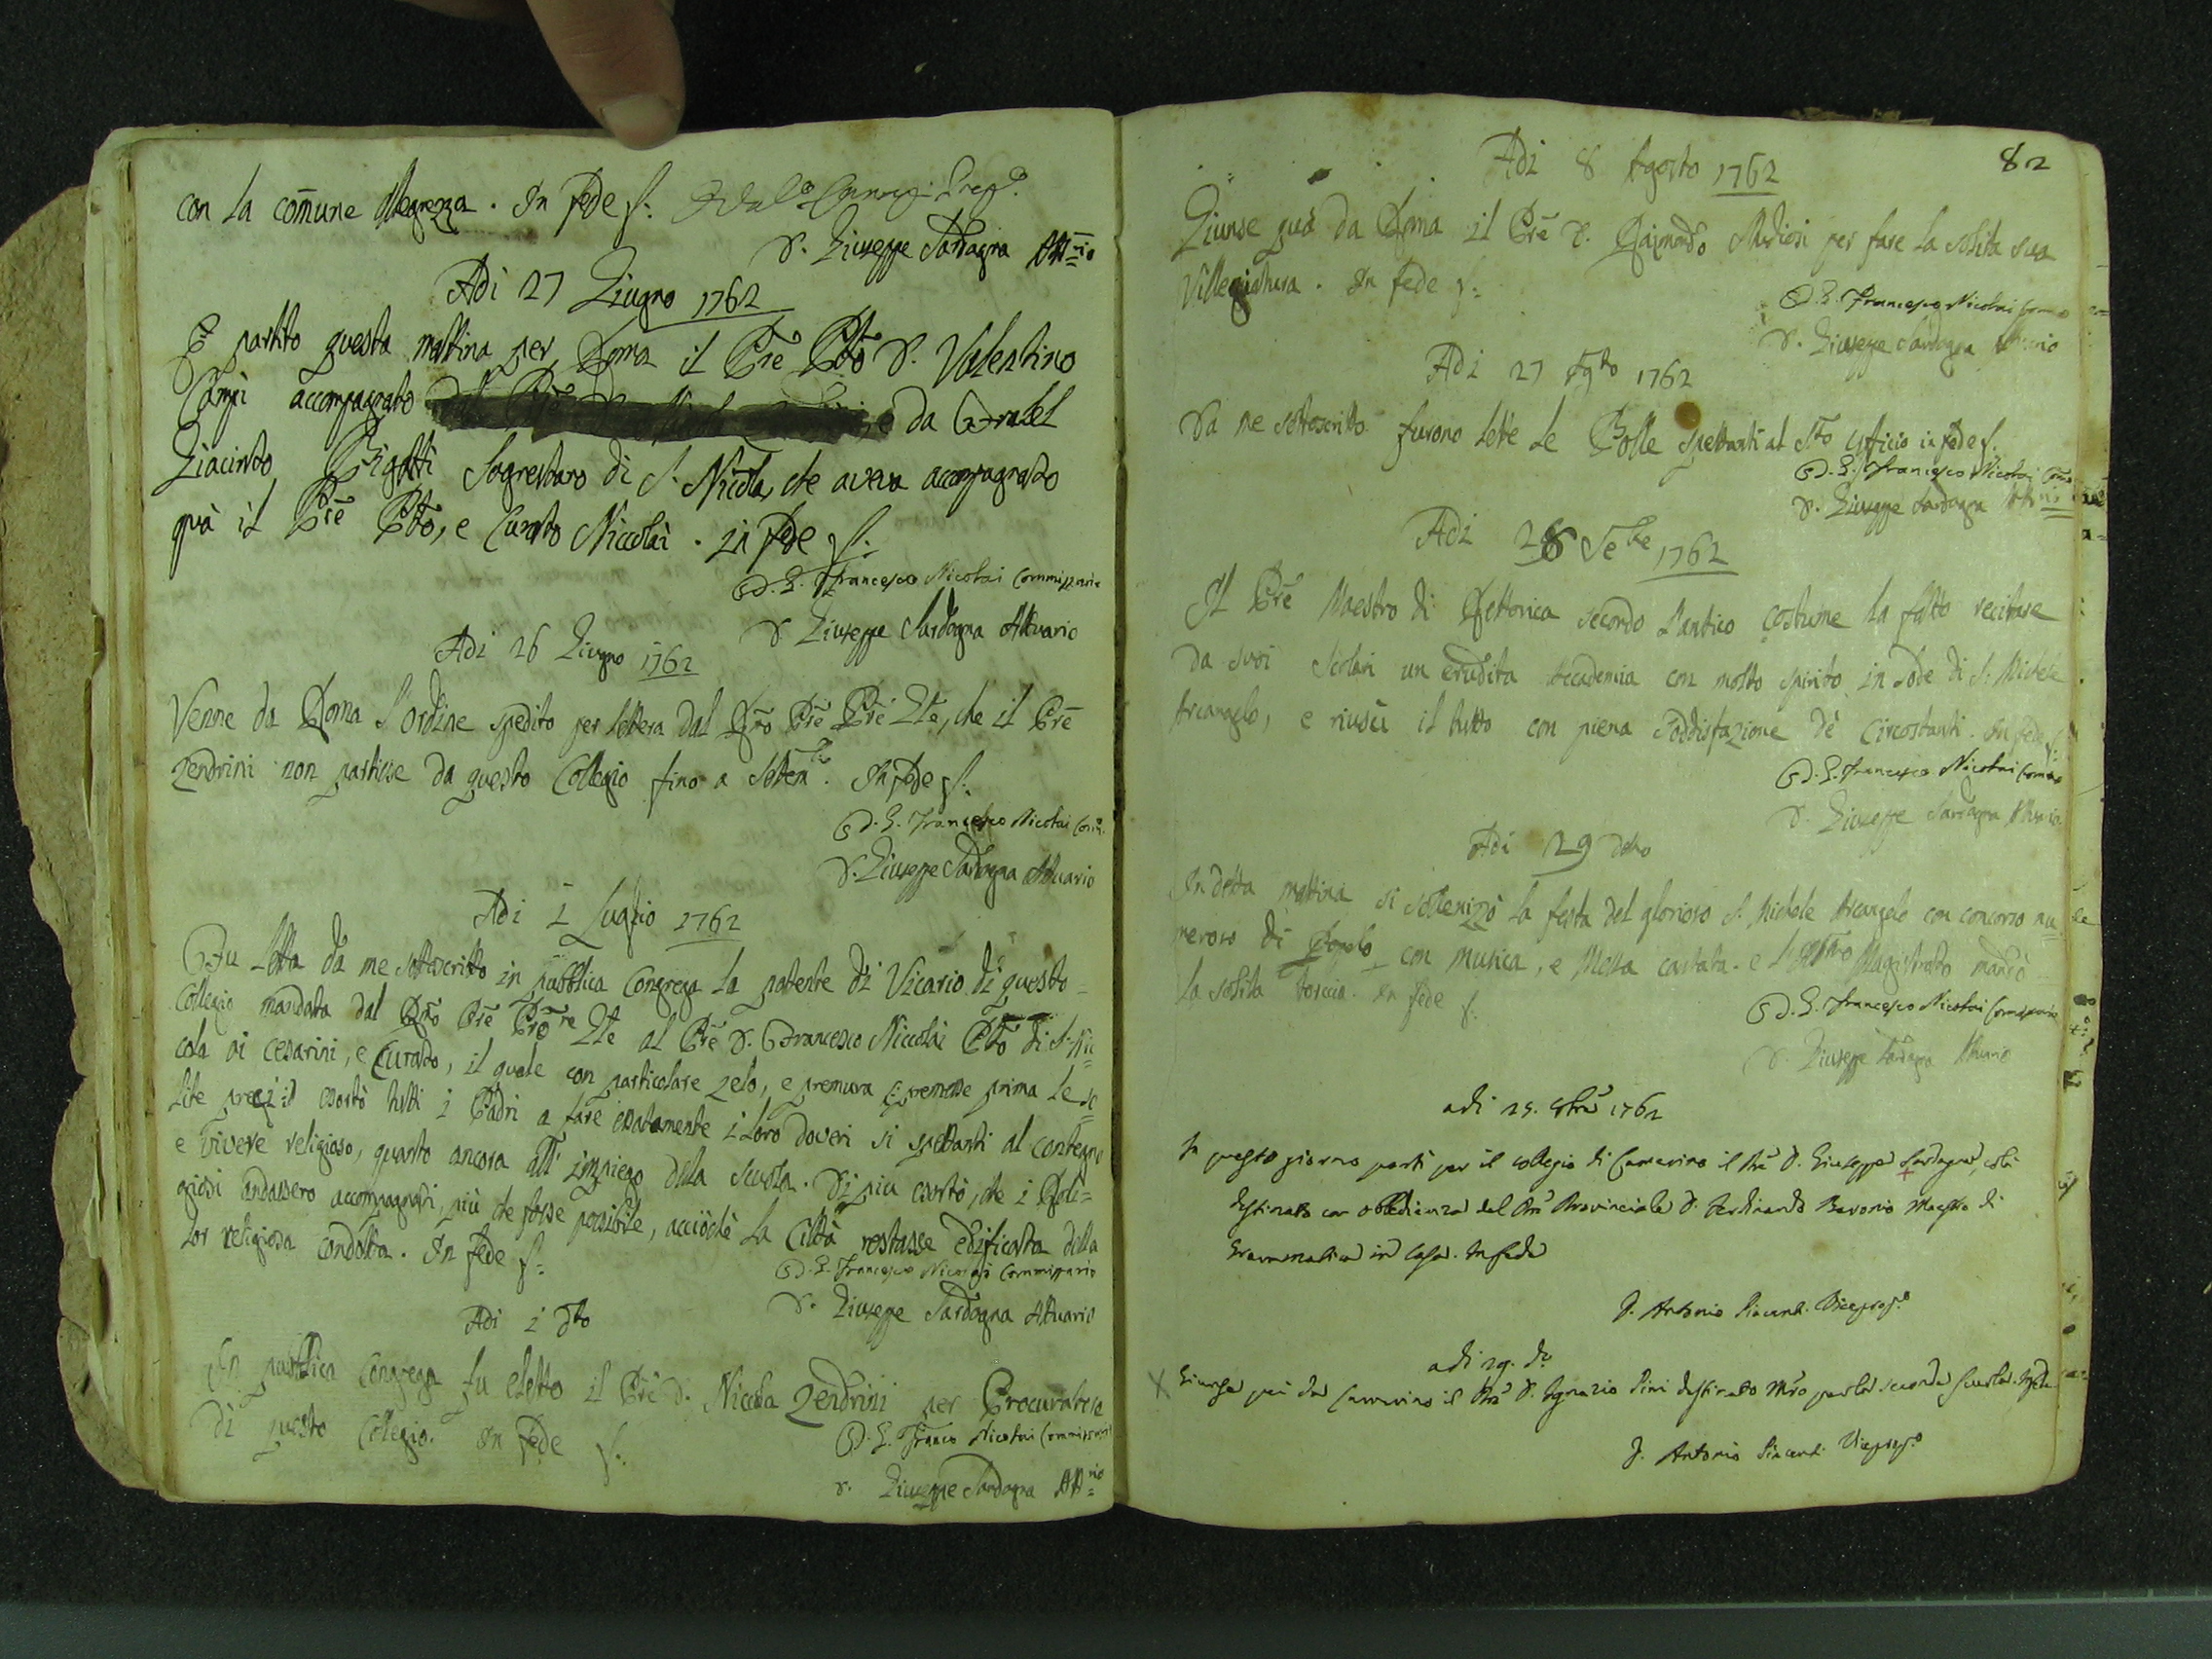 con la com̄une allegrezza. In fede
D. Giuseppe Sardagna Att.rio
Adi 27 Giugno 1762
È partito questa mattina per Roma il Pr̄e Pto D. Valentino
Campi accompagnato da Fratel
Giacinto Bigatti Sagrestano di S. Nicola, che aveva accompagnato
quà il Pr̄e Pto, e Curato Niccolai. in fede
D. G. Francesco Nicolai Commissario
D. Giuseppe Sardagna Attuario
Adi 26 Giugno 1762
Venne da Roma l'ordine spedito per lettera dal Pr̄e, che il Pr̄e
Zendrini non partisse da questo Collegio fino a Settem.bre In fede
D. G. Francesco Nicolai Com.
D. Giuseppe Sardagna Attuario
Adi 1 Luglio 1762
Fu letta da me sottoscritto in pubblica Congrega la patente di Vicario di questo
Collegio mandata dal Pr̄e al Pr̄e D. Francesco Niccolai Pto di S. Nic=
cola ai Cesarini, e Curato, il quale con particolare zelo, e premura premesse prima le so=
lite esortò tutti i Padri a fare esatamente i loro doveri si spettanti al contegno
e vivere religioso, quanto ancora all' impiego della Scuola. Di piu esortò, che i Reli=
giosi andassero accompagnati, più che fosse possibile, acciòchè la Città restasse edificata della
lor religiosa condotta. In fede
D. G. Francesco Nicolai Commissario
D. Giuseppe Sardagna Attuario
Adi 1 dto
In pubblica Congrega fu eletto il Pr̄e D. Niccola Zendrini per Procuratore
di questo Collegio. In fede
D. G. Franco Nicolai Commissario
D. Giuseppe Sardagna Att.rio
82
Adi 8 Agosto 1762
Giunse quà da Roma il Pr̄e D. Raimondo per fare la solita sua
Villegiatura. In fede
D. G. Francesco Nicolai Com̄
D. Giuseppe Sardagna Attuario
Adi 27 Agto 1762
Da me sottoscritto furono lete le Bolle spettanti al Sto Uficio in fede
D. G. Francesco Nicolai Com̄
D. Giuseppe Sardagna
Adi 28 Se.bre 1762
Il Pr̄e Maestro di Rettorica secondo l'antico costume ha fatto recitare
da suoi Scolari un erudita Accademia con molto spirito in lode di S. Michele
Arcangelo, e riuscì il tutto con piena soddisfazione dè Circostanti. In fede
D. G. Francesco Nicolai Com̄
D. Giuseppe Sardagna Attuario
Adi 29 detto
In detta mattina si sollenizò la festa del glorioso S. Michele Arcangelo con concorso nu=
meroso di Popolo con musica, e Messa cantata. e l'Illmo Magistrato mandò
la solita torcia. In fede
D. G. Francesco Nicolai Commissario
D. Giuseppe Sardagna Attuario
adi 25. 1762
In questo giorno partì per il collegio di Camerino il Pre D. Giuseppe Sardagna, colà
destinato con obbedienza del Pre Provinciale D. Ferdinando Bavonio Maestro di
Grammatica in Casa. In fede
D. Antonio Piacenti. Viceprep.o
adi 29. do
X Giunse quì da Camerino il Pre D. Ignazio Pini destinato Mro per la seconda scuola. In fede
D. Antonio Piacenti Viceprep.o